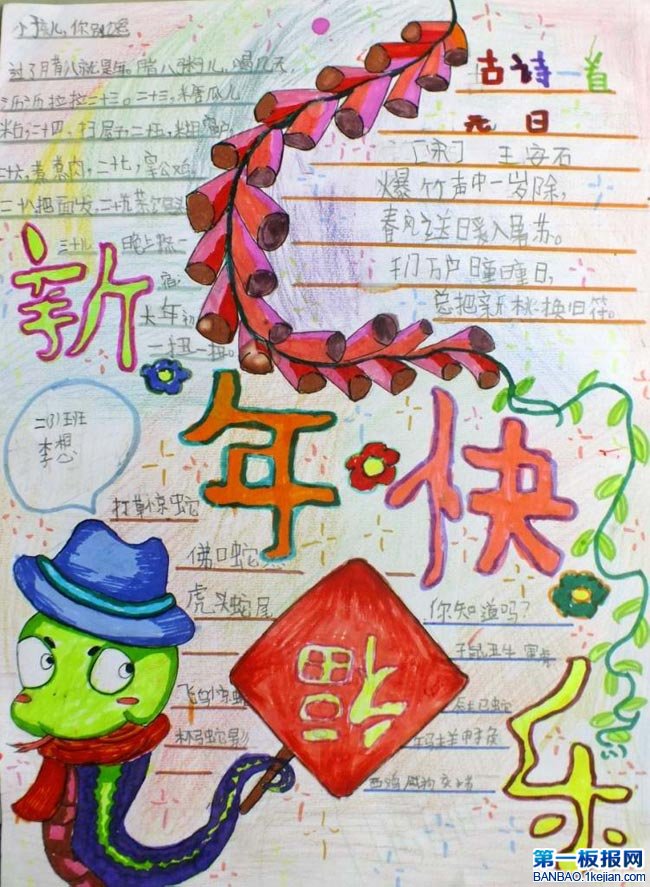 小孩儿,你别馋
过了月昔八就是年,腊八粥儿,喝几天,
沥沥拉拉二十三。二十三,糖瓜儿
粘,二十四,扫房子,二十五,
二十六,煮煮肉,二十七,宰公鸡,
二十八把面发,二十九蒸
三十儿 晚上
宿,
大年初
一扭一扭。
古诗一首
元日
[宋] 王安石
爆竹声中一岁除,
春风送日暖入屠苏。
千门万户曈曈日,
总把新桃换旧符。
新年快乐
二(3)班
李想
打草惊蛇
佛口蛇
虎头蛇尾
飞鸟惊蛇
杯弓蛇影
福
你知道吗?
子鼠丑牛 寅虎
辰龙巳蛇
午马未羊申猴
酉鸡戌狗亥猪
第一板报网
BANBAO.1kejian.com